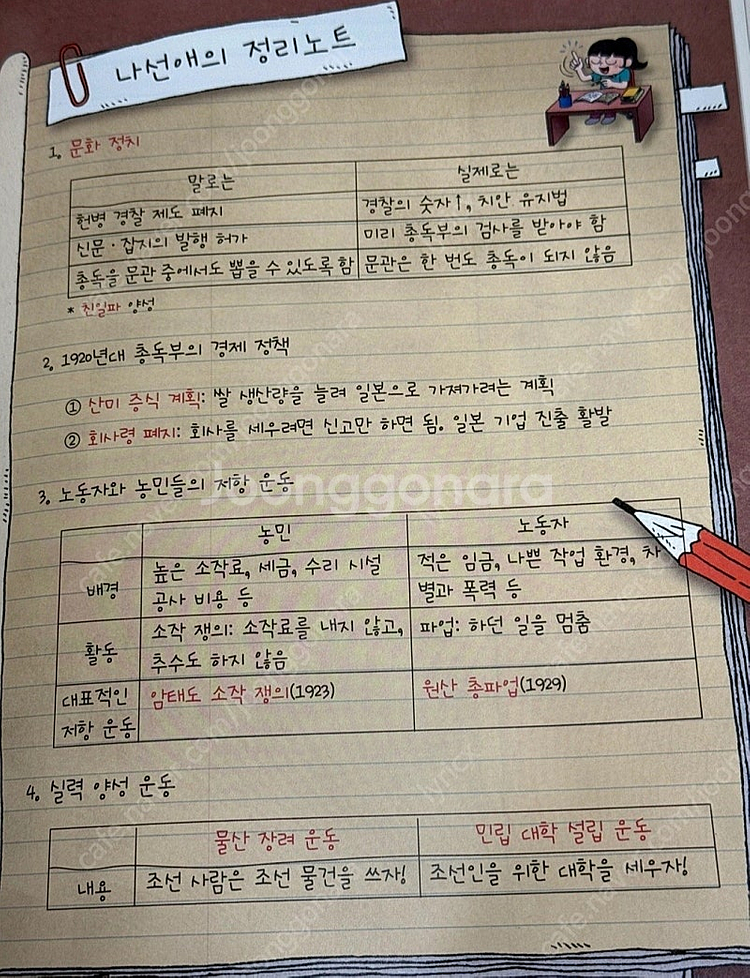 나선애의 정리노트
1. 문화 정치
말로는 실제로는
헌병 경찰 제도 폐지 경찰의 숫자↑, 치안 유지법
신문·잡지의 발행 허가 미리 총독부의 검사를 받아야 함
총독을 문관 중에서도 뽑을 수 있도록 함 문관은 한 번도 총독이 되지 않음
* 친일파 양성
2. 1920년대 총독부의 경제 정책
① 산미 증식 계획: 쌀 생산량을 늘려 일본으로 가져가려는 계획
② 회사령 폐지: 회사를 세우려면 신고만 하면 됨. 일본 기업 진출 활발
3. 노동자와 농민들의 저항 운동
농민 노동자
배경
높은 소작료, 세금, 수리 시설
공사 비용 등
적은 임금, 나쁜 작업 환경, 차
별과 폭력 등
활동
소작 쟁의: 소작료를 내지 않고,
추수도 하지 않음
파업: 하던 일을 멈춤
대표적인
저항 운동
암태도 소작 쟁의(1923)
원산 총파업(1929)
4. 실력 양성 운동
물산 장려 운동 민립 대학 설립 운동
내용 조선 사람은 조선 물건을 쓰자! 조선인을 위한 대학을 세우자!
Joonggonara